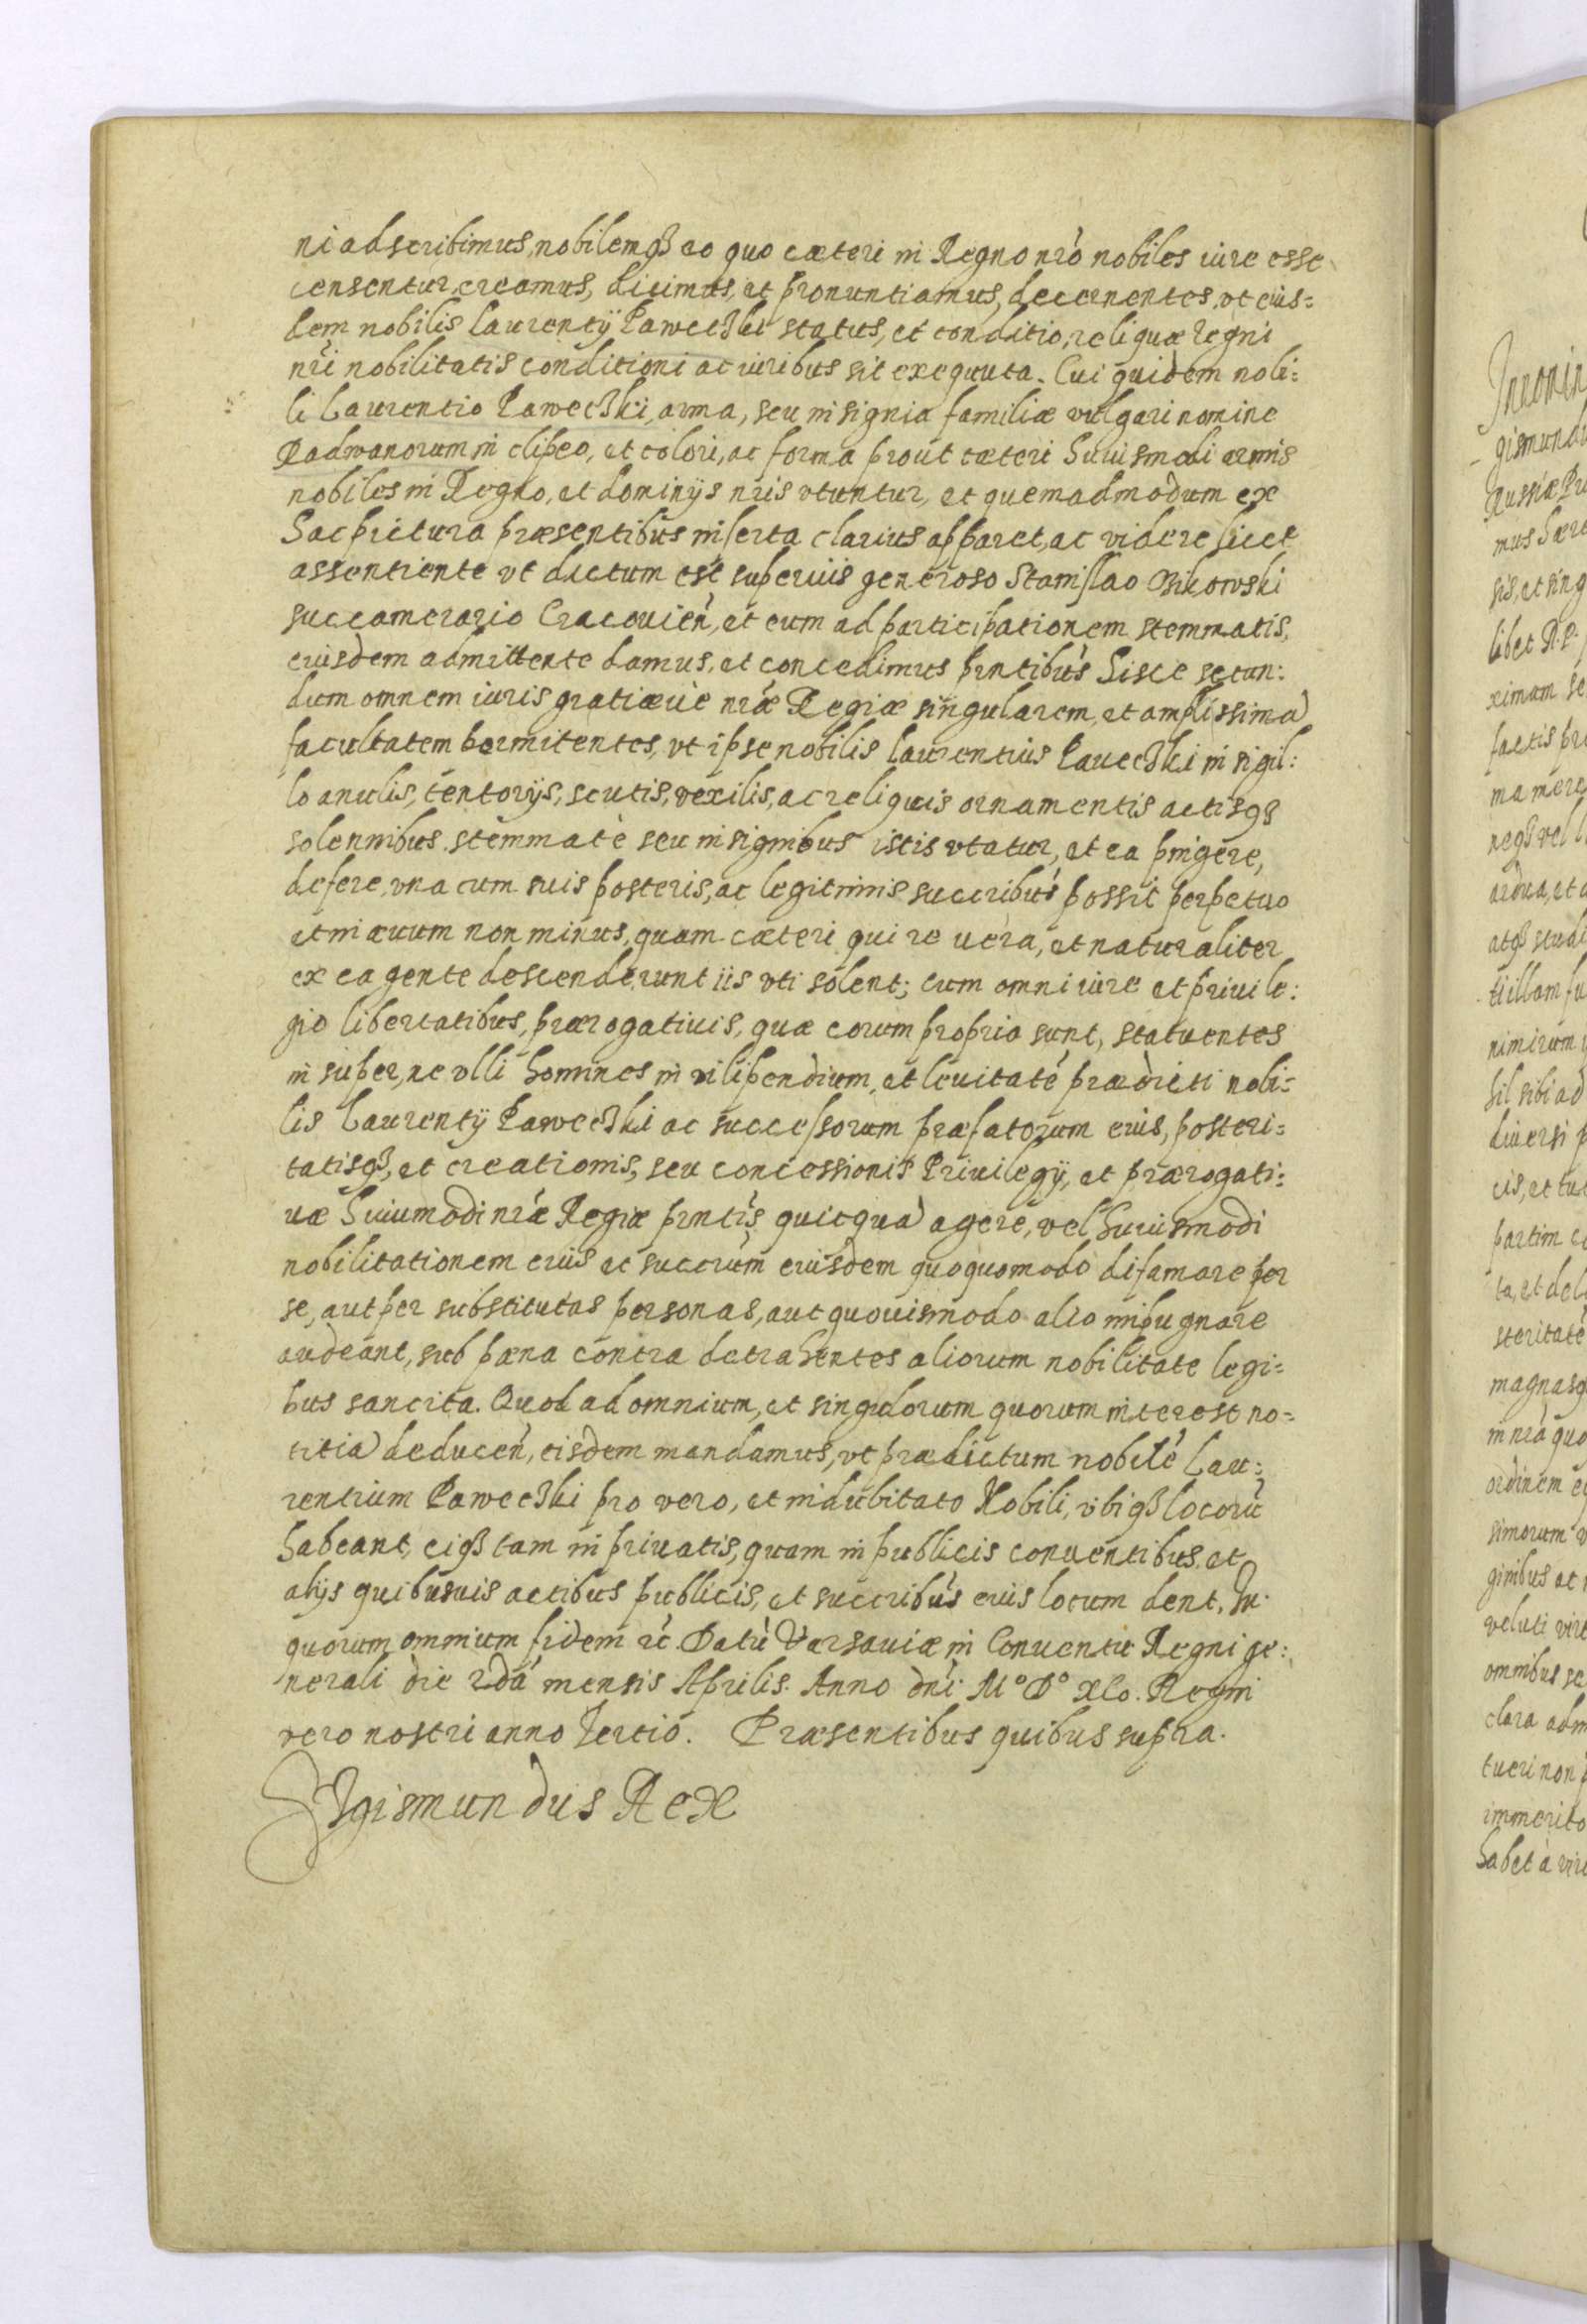 ni adscribimus, nobilemq3 eo quo cæteri in Regno nrõ nobiles iure esse
censentur, creamus, dicimus, et pronuntiamus, decernentes, vt eius=
dem nobilis Laurentij Pawecȝki status, et conditio, reliquæ regni
nri nobilitatis conditioni ac iuribus sit exequuta. Cui quidem nobi:
li Laurentio Pawecȝkij, arma, seu insignia familiæ vulgari nomine
Radwanorum in clipeo, et colori, ac forma prout cæteri huiusmodi armis
nobiles in Regno, et dominijs nris vtuntur, et quemadmodum ex
hac pictura præsentibus inserta clarius apparet, ac videre licet
assentiente vt dictum est superius generoso Stanislao Bikowski
succamerario Cracouień, et eum ad participationem stemmatis,
eiusdem admittente damus, et concedimus pntibus hisce secun:
dum omnem iuris gratiæuè nræ Regiæ singularem, et amplissimã
facultatem permitentes, vt ipse nobilis Laurentius Pavecȝki in sigil:
lo anulis, tentorijs, scutis, vexilis, ac reliquis ornamentis actisq3
solennibus stemmate seu insignibus istis vtatur, et ea pingere,
defere, vna cum suis posteris, ac legitimis succribus possit perpetuo
et in æuum non minus, quam cæteri qui re uera, et naturaliter
ex ea gente descenderunt iis vti solent; cum omni iure et priuile:
gio libertatibus, prærogatiuis, quæ eorum propria sunt, statuentes
in super, ne vlli homines in vilipendium, et leuitatẽ prædicti nobi=
lis Laurentij Pawecȝki ac successorum præfatorum eius, posteri=
tatisq3, et creationis, seu concessionis Priuilegij, et prærogati=
uæ huiumodi nræ Regiæ pntis quicquã agere, vel huiusmodi
nobilitationem eius et succrum eiusdem quoquomodo difamare per
se, aut per substitutas personas, aut quouismodo alio impugnare
audeant, sub pæna contra detrahentes aliorum nobilitate legi=
bus sancita. Quod ad omnium, et singulorum quorum interest no=
titiã deduceń, eisdem mandamus, vt prædictum nobilẽ Lau:
rentium Pawecȝki pro vero, et indubitato Nobili, vbiq3 locorũ
habeant, eiq3 tam in priuatis, quam in publicis conuentibus, et
alijs quibusuis actibus publicis, et succribus eius locum dent. In
quorum omnium fidem rc. Datũ Varsauiæ in Conuentu Regni ge:
nerali die 2dá mensis Aprilis. Anno dni M° D° XCo. Regni
vero nostri anno Tertio. Præsentibus quibus supra.
Sigismundus Rex